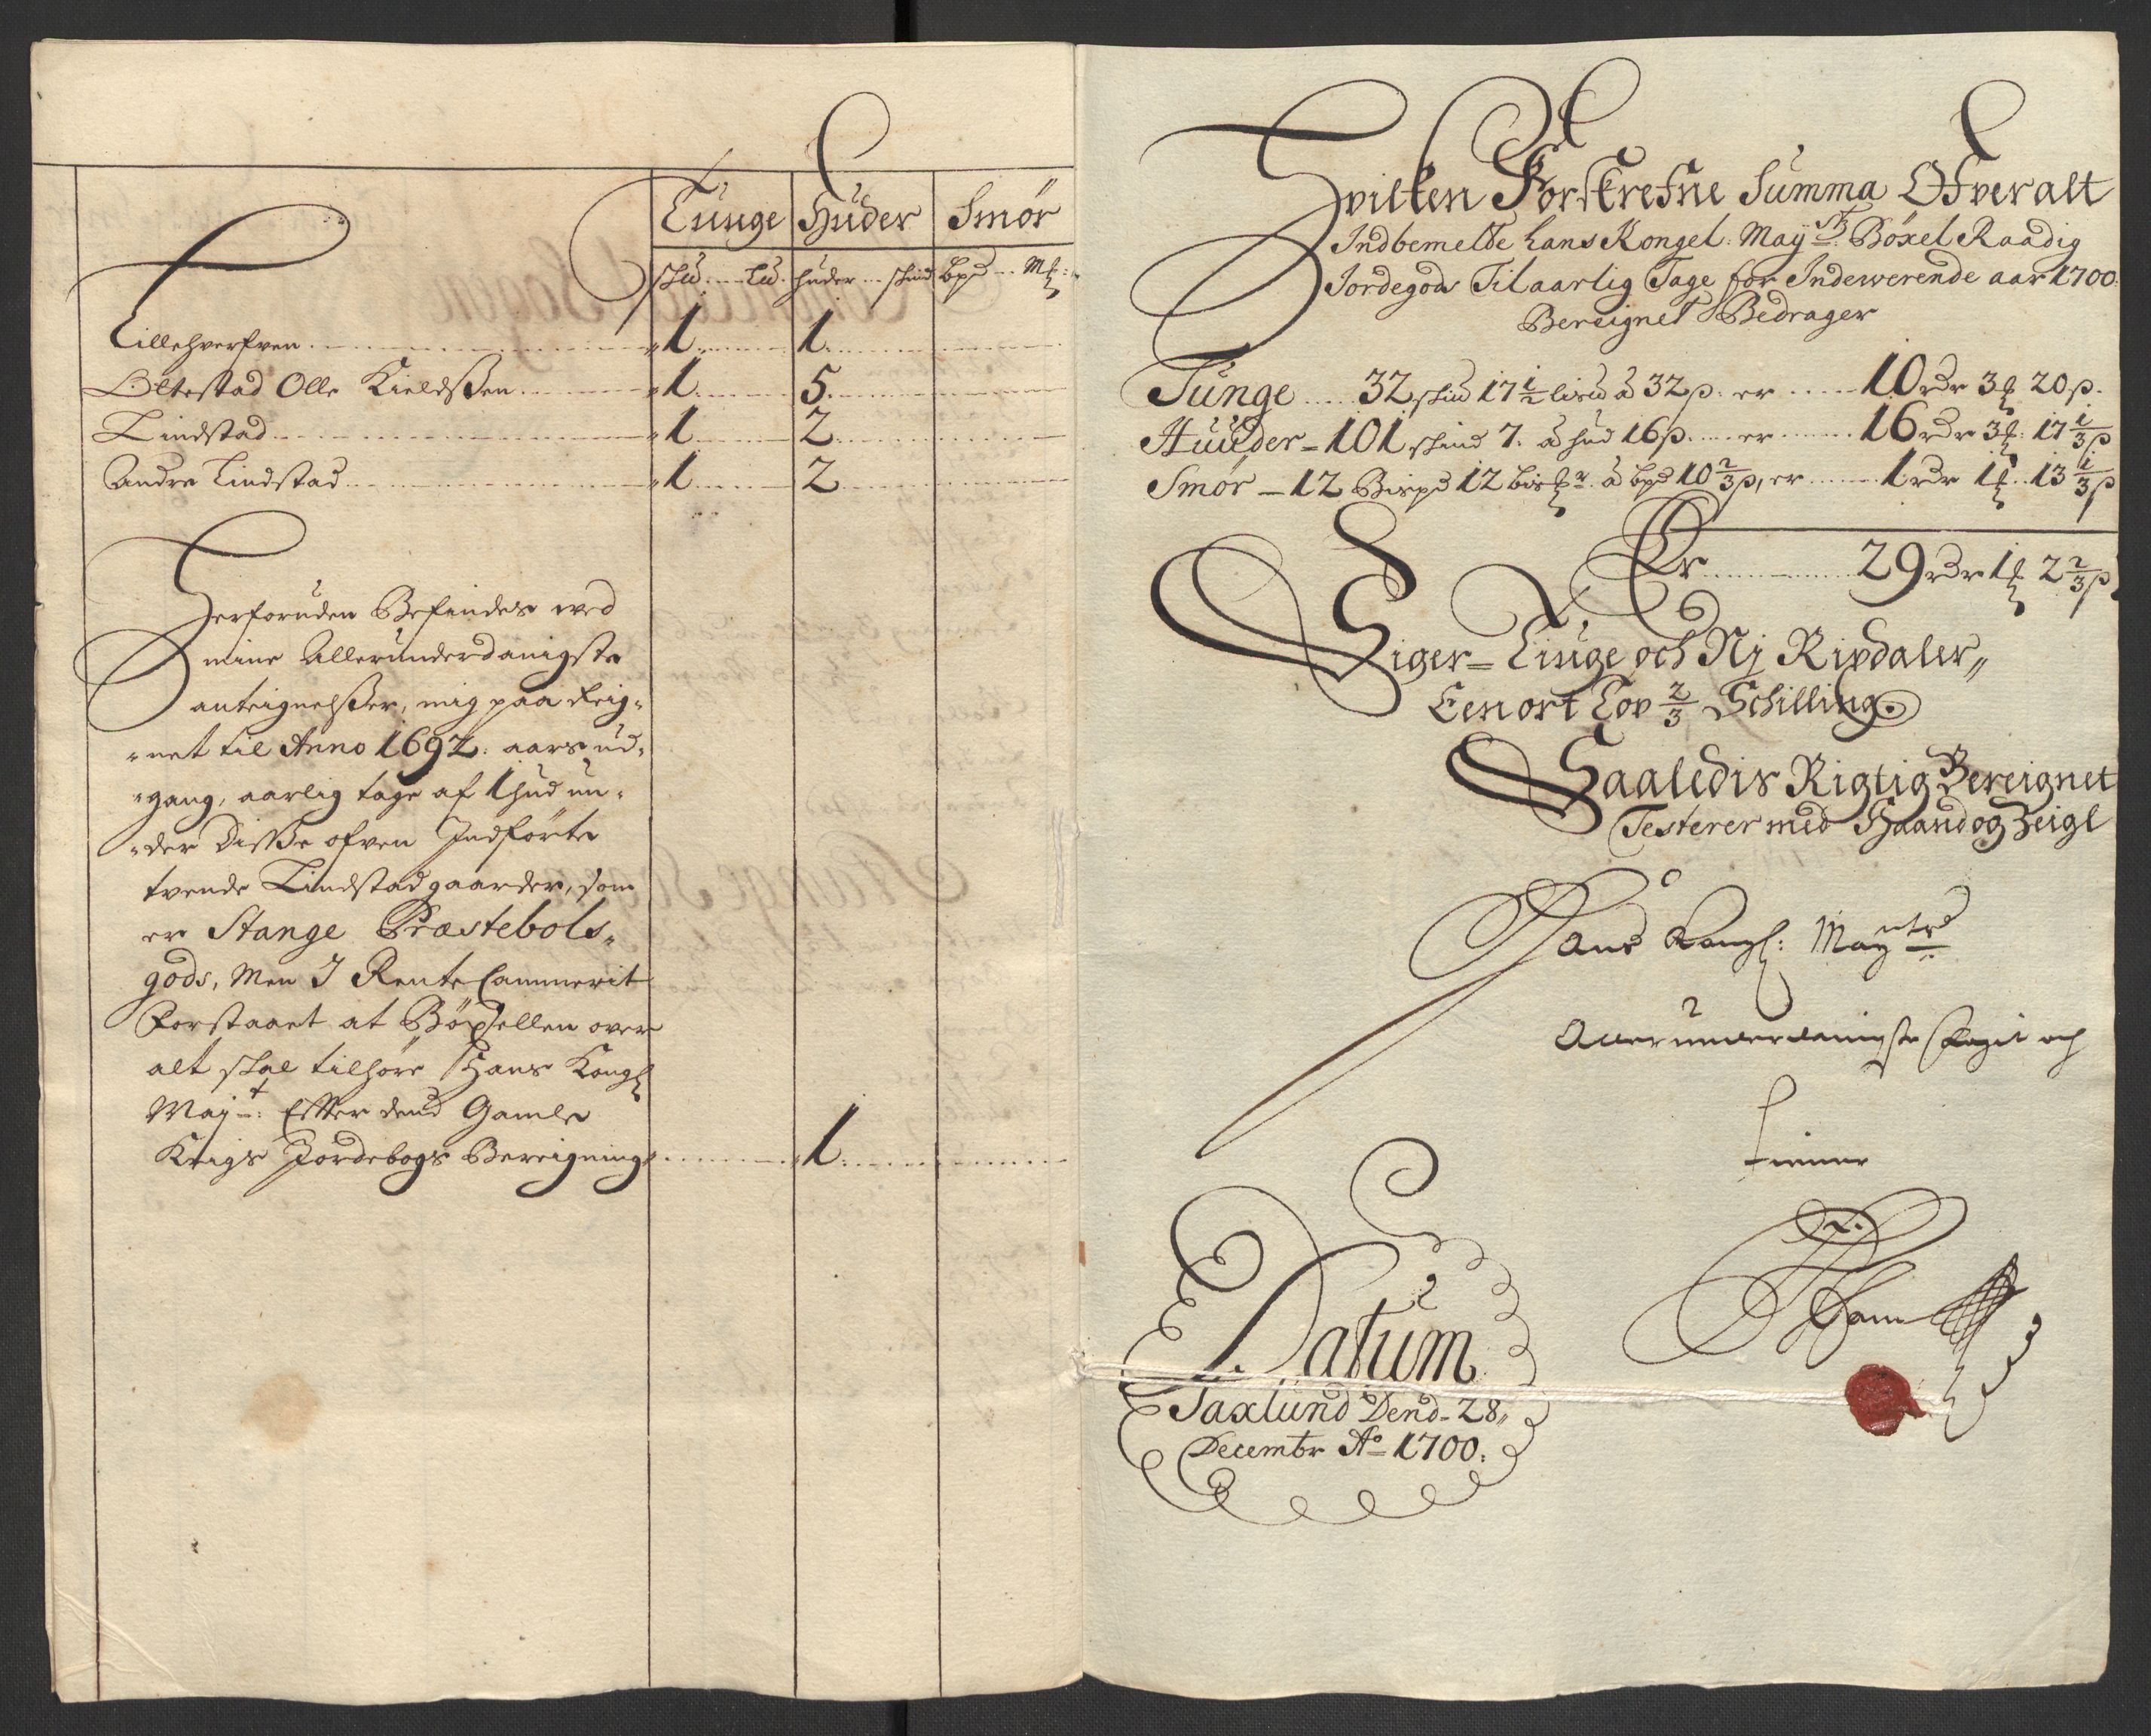 Tunge Huder Smör
skud lud. huder skind bpd Mk:
Lillehverfven 1 1
Oltestad Olle Kieldssen 1 5
Lindstad 1 2
Andre Lindstad 1 2
Herforuden Befindes ved
mine Allerunderdanigste
anteignelsser, mig paa Reig-
net til Anno 1692. aars ud-
gang, aarlig tage af 1 hud un-
der Disse ofven Indförte
tvende Lindstad gaarder, som
er Stange Præstebols-
gods, Men I Rente Cammerit
Forstaaet at Böxsellen over
alt skal tilhöre Hans Kongl
May-t: Effter dend Gamle
Krigs Jordebogs Bereigning 1
Hvilken Forskrefne Summa Ofver alt
Indbemelte hans Kongel: Mayst: Böxel Raadig
Jordegods Til aarlig Tage for Indewerende aar 1700
Bereignet Bedrager
Tunge 32 skud 17 1/2 lisud à 32 ß. er 10 rdr 3 20 ß.
Huuder - 101 skind 7. à hud 16 ß. er 16 rdr 3 17 1/3 ß
Smör - 12 Bispd 12 à bpd 10 2/3 ß, er 1 rdr 1 13 1/3 ß
Er 29 rdr 1 2 2/3 ß
Siger - Tiuge och Nj Rixdaler,,
Een ort Tov 2/3 Schilling.
Saaledis Rigtig Bereignet
Testerer med Haand og Zeigl
Hans Kongl: May
Allerunderdanigste och
tienner
Datum
Saxlund Dend - 28,,
Decembr Ao 1700.